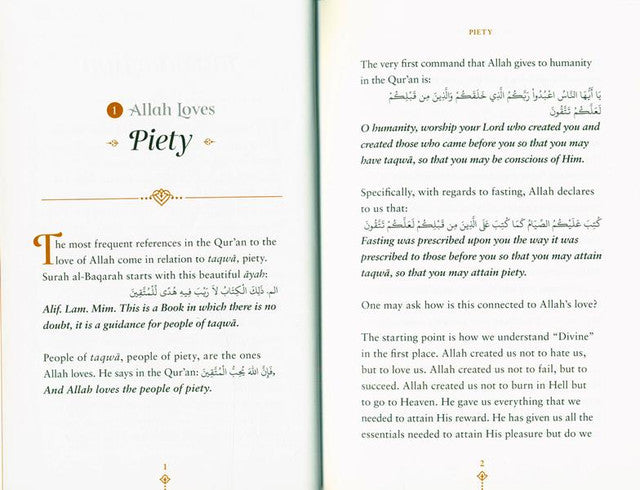 1 Allah Loves
Piety
The most frequent references in the Qur'an to the
love of Allah come in relation to taqwā, piety.
Surah al-Baqarah starts with this beautiful āyah:
الم. ذَلِكَ الْكِتَابُ لاَ رَيْبَ فِيهِ هُدًى لِّلْمُتَّقِينَ
Alif. Lam. Mim. This is a Book in which there is no
doubt, it is a guidance for people of taqwā.
People of taqwā, people of piety, are the ones
Allah loves. He says in the Qur'an: فَإِنَّ اللهَ يُحِبُّ الْمُتَّقِينَ,
And Allah loves the people of piety.
1
PIETY
The very first command that Allah gives to humanity
in the Qur'an is:
يَا أَيُّهَا النَّاسُ اعْبُدُواْ رَبَّكُمُ الَّذِي خَلَقَكُمْ وَالَّذِينَ مِن قَبْلِكُمْ
لَعَلَّكُمْ تَتَّقُونَ
O humanity, worship your Lord who created you and
created those who came before you so that you may
have taqwā, so that you may be conscious of Him.
Specifically, with regards to fasting, Allah declares
to us that:
كُتِبَ عَلَيْكُمُ الصِّيَامُ كَمَا كُتِبَ عَلَى الَّذِينَ مِن قَبْلِكُمْ لَعَلَّكُمْ تَتَّقُونَ
Fasting was prescribed upon you the way it was
prescribed to those before you so that you may attain
taqwā, so that you may attain piety.
One may ask how is this connected to Allah's love?
The starting point is how we understand "Divine"
in the first place. Allah created us not to hate us,
but to love us. Allah created us not to fail, but to
succeed. Allah created us not to burn in Hell but
to go to Heaven. He gave us everything that we
needed to attain His reward. He has given us all the
essentials needed to attain His pleasure but do we
2